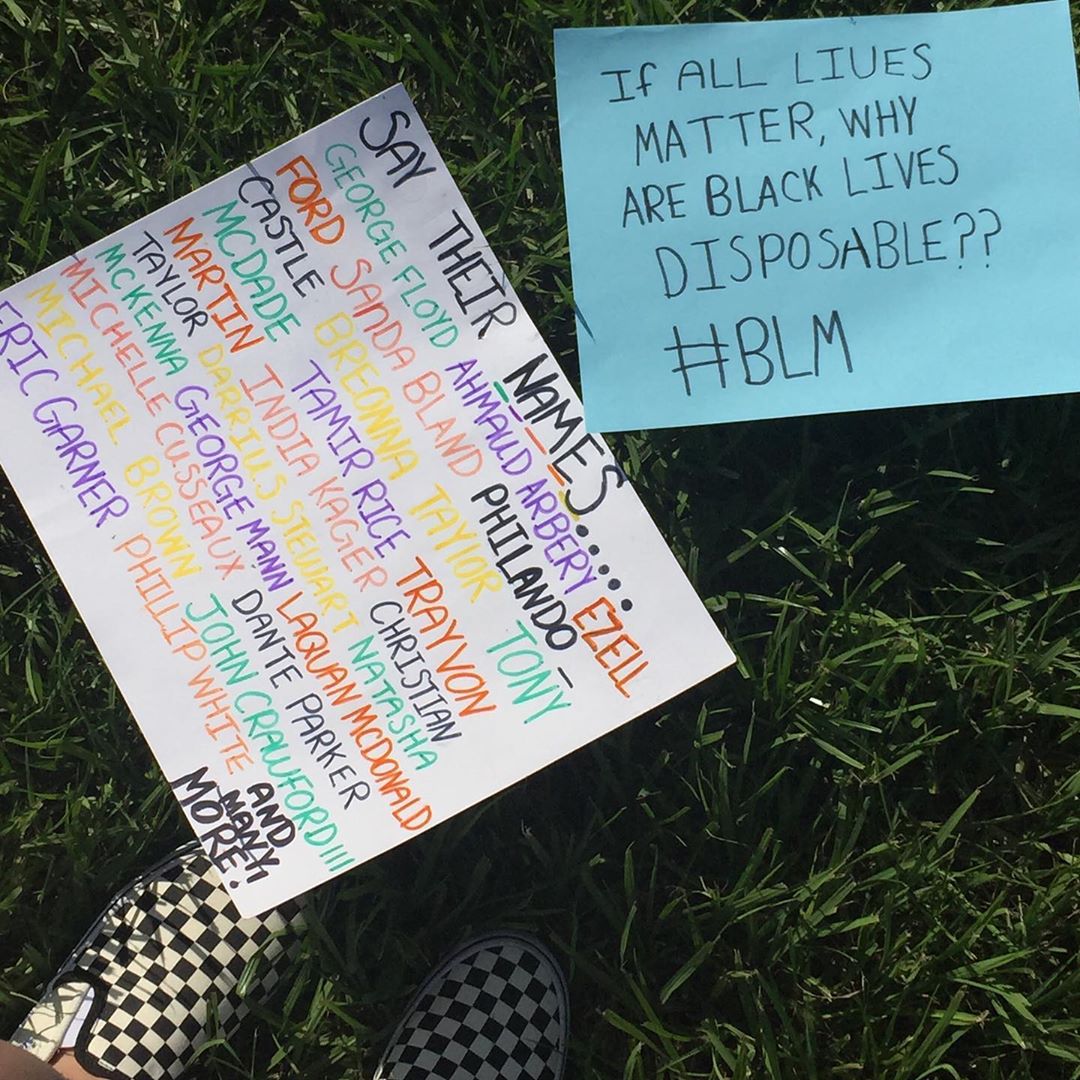 SAY THEIR NAMES.....
GEORGE FLOYD AHMAUD ARBERY EZELL
FORD SANDA BLAND PHILANDO -
CASTLE BREONNA TAYLOR TONY
MCDADE TAMIR RICE TRAYVON
MARTIN INDIA KAGER CHRISTIAN
TAYLOR DARRIUS STEWART NATASHA
MCKENNA GEORGE MANN LAQUAN MCDONALD
MICHELLE CUSSEAUX DANTE PARKER
MICHAEL BROWN JOHN CRAWFORD III
ERIC GARNER PHILLIP WHITE AND
MANY
MORE!
If ALL LIVES
MATTER, WHY
ARE BLACK LIVES
DISPOSABLE??
#BLM